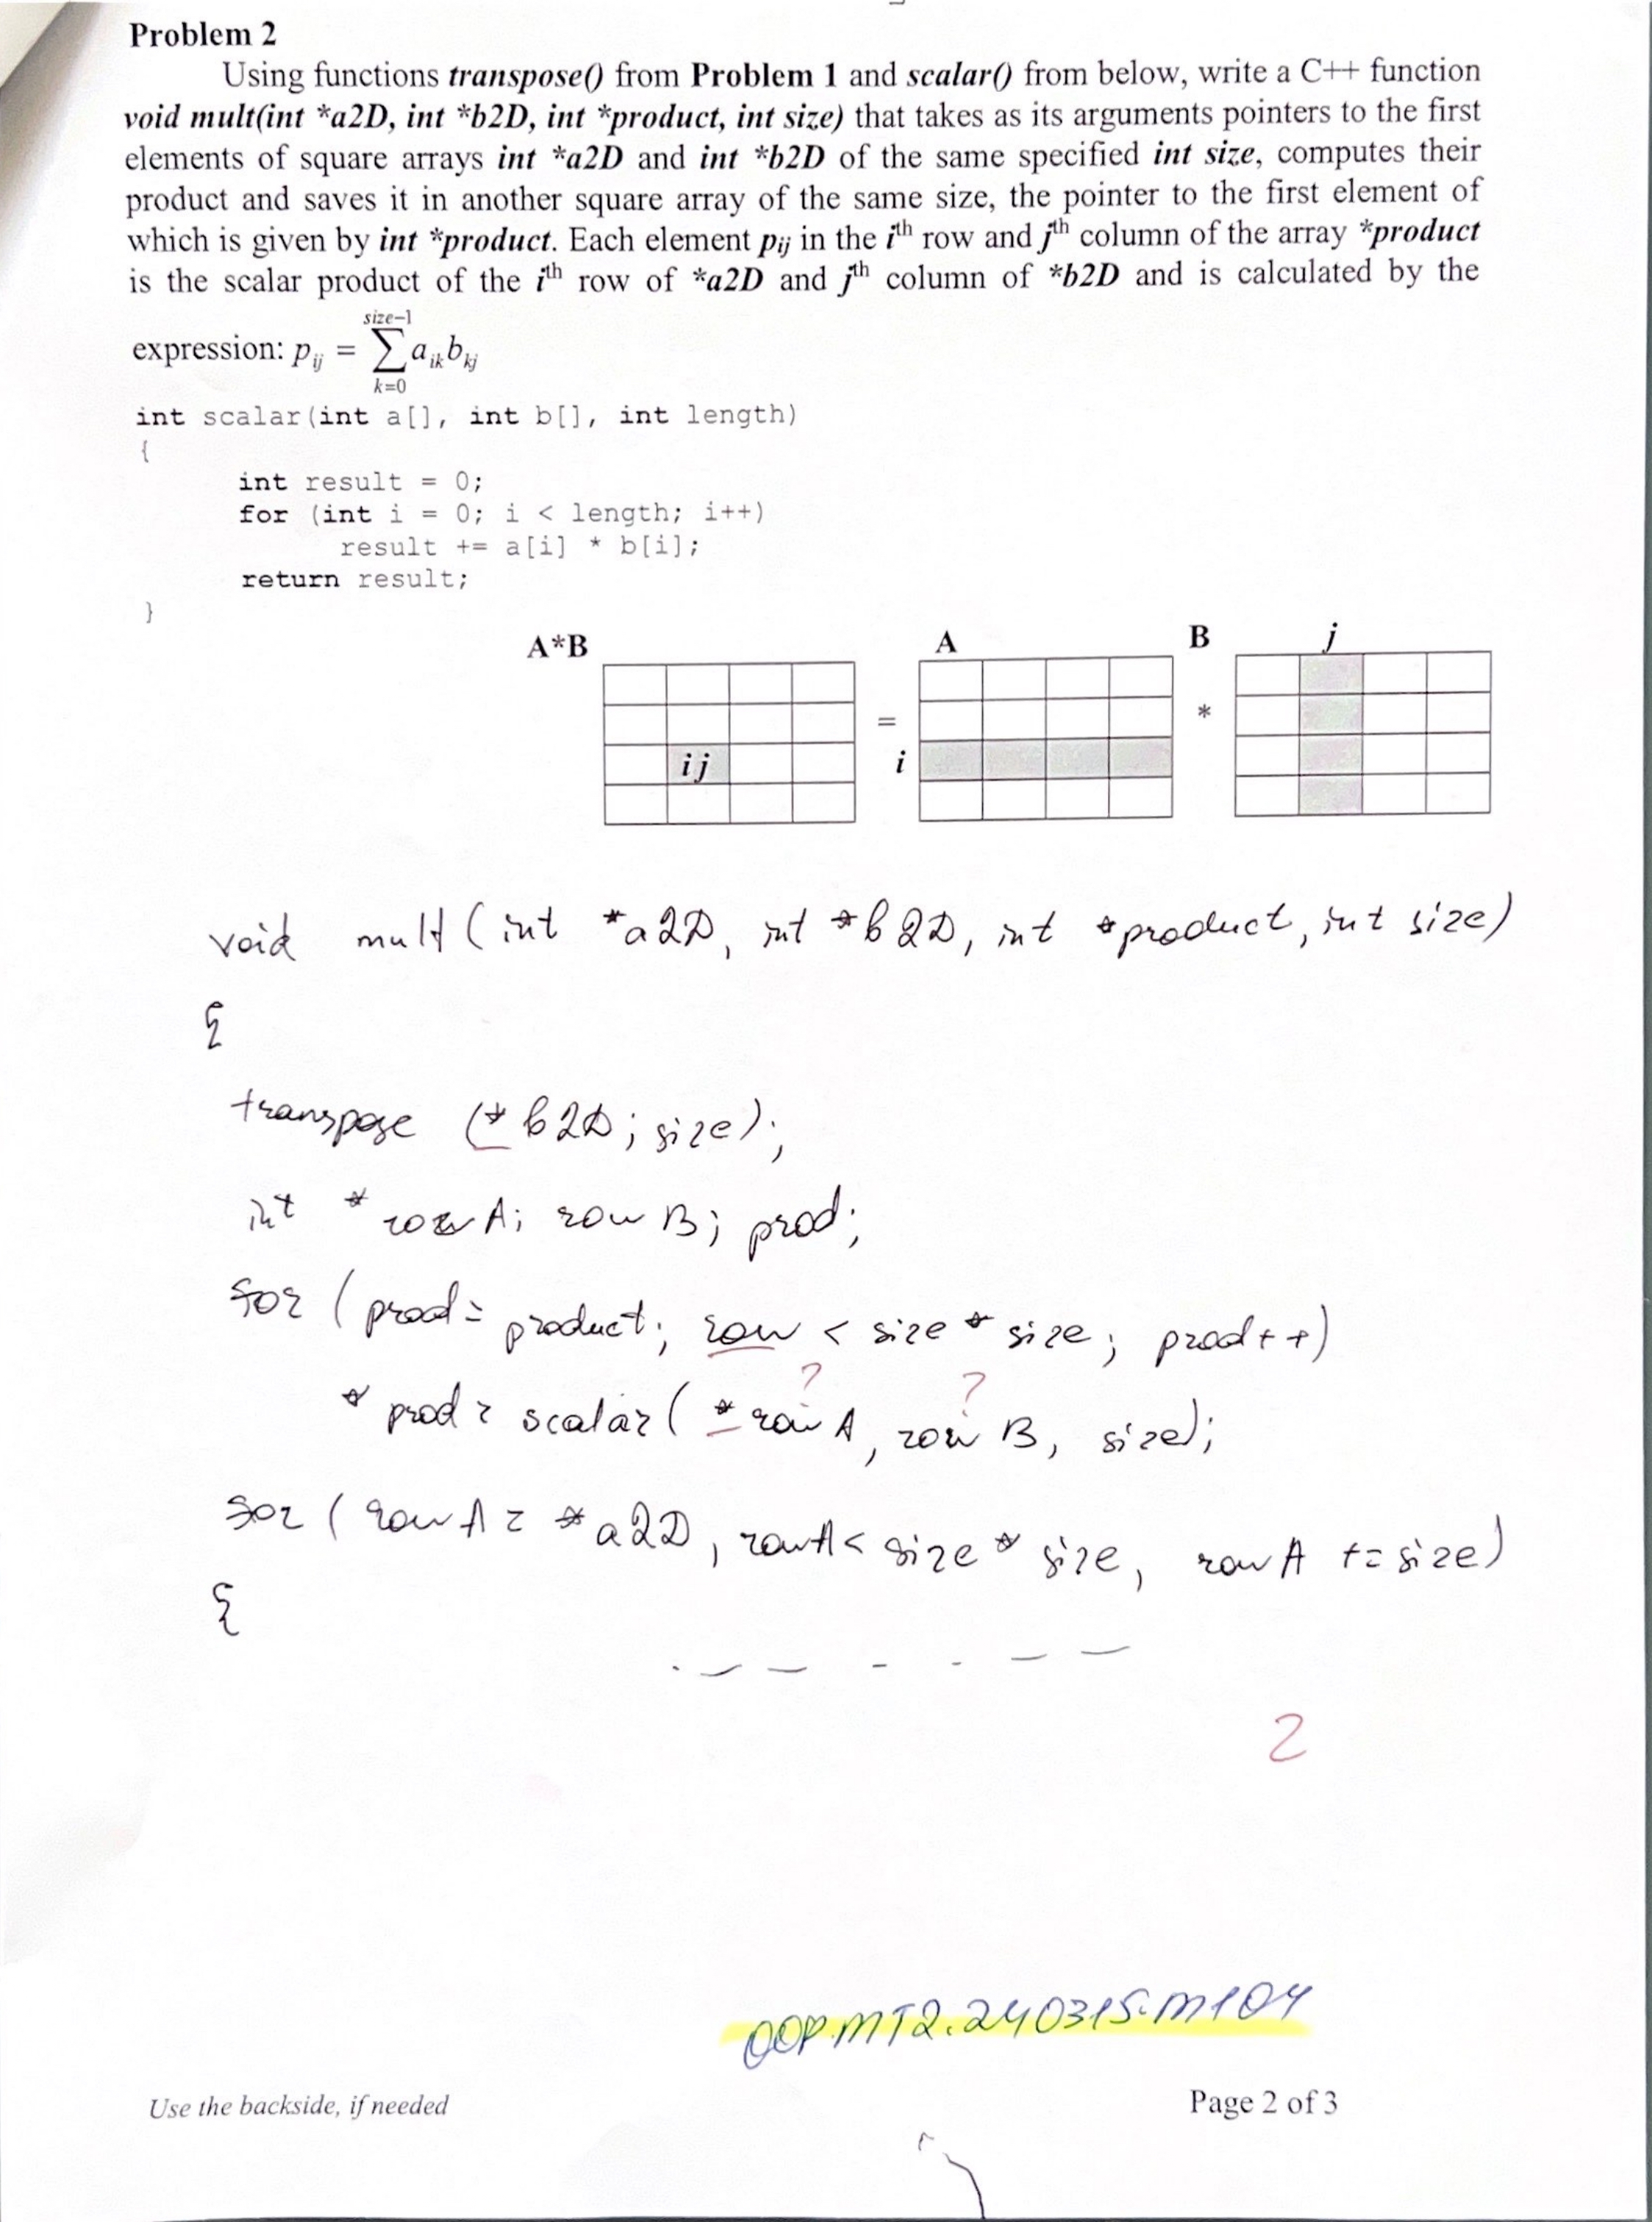 Problem 2
Using functions transpose() from Problem 1 and scalar() from below, write a C++ function
void mult(int *a2D, int *b2D, int *product, int size) that takes as its arguments pointers to the first
elements of square arrays int *a2D and int *b2D of the same specified int size, computes their
product and saves it in another square array of the same size, the pointer to the first element of
which is given by int *product. Each element pij in the ith row and jth column of the array *product
is the scalar product of the ith row of *a2D and jth column of *b2D and is calculated by the
size−1
expression: pij = ∑ aik bkj
k=0
int scalar(int a[], int b[], int length)
{
int result = 0;
for (int i = 0; i < length; i++)
result += a[i] * b[i];
return result;
}
A*B A B j
= *
i j i
void mult (int *a2D, int *b2D, int *product, int size)
{
transpose (*b2D; size);
int *rowA; rowB; prod;
for (prod = product; row < size * size; prod++)
? ?
*prod = scalar(*rowA, rowB, size);
for (rowA = *a2D, rowA < size * size, rowA += size)
{
2
OOP.MT2.240315.M104
Use the backside, if needed Page 2 of 3